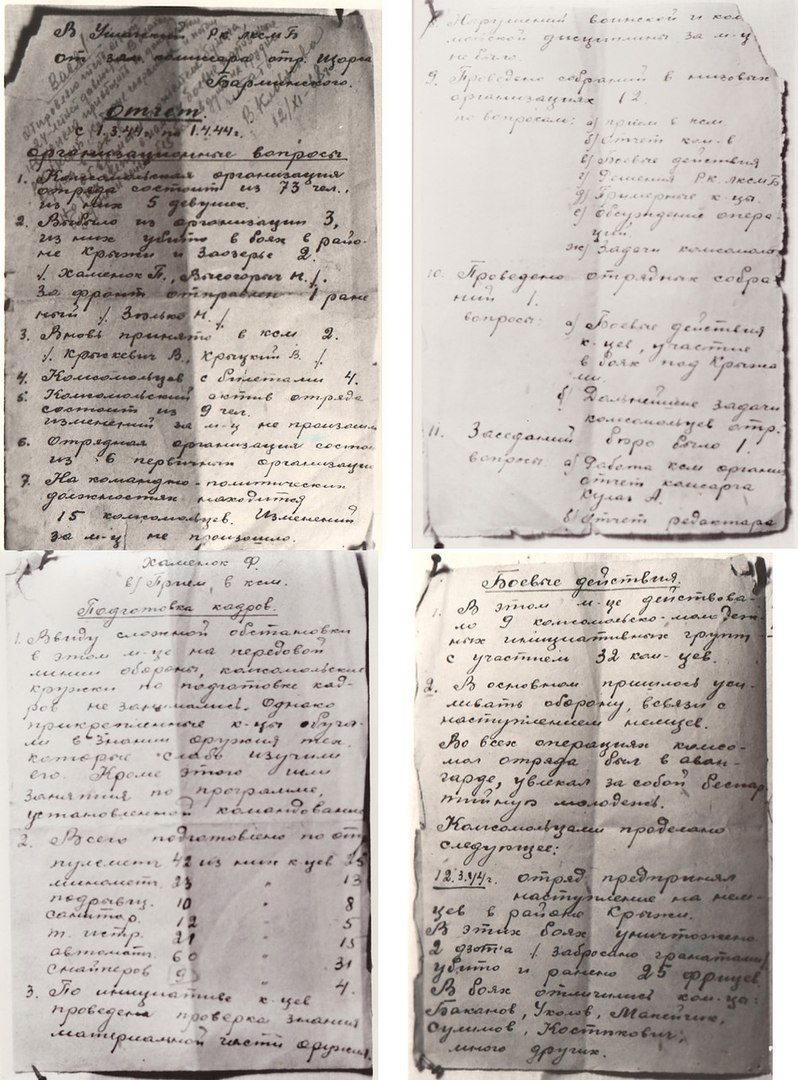 В Ушачский Рк лксмБ
от зам. комисара отр. Щорса
Бармин­ского.
Отчет
с 1.3.44 по 1.4.44г.
организационные вопросы
1. Комсомольская организация
отряда состоит из 73 чел.,
из них 5 девушек.
2. Выбыло из организации 3,
из них убито в боях в райо-
не Крыжи и Заозерье 2.
/. Хаменок П., Высогорыч Н./.
За фронт отправлен 1 ране
ный /. Зюлько Н./
3. Вновь принято в ксм 2.
/. Крыжевич В., Крыцкий В. /.
4. Комсомольцев с билетами 4.
5. Комсомольский актив отряда
состоит из 9 чел.
изменений за м-ц не произош
6. Отрядная организация состо
из 6 первичных организаци
7. На командно-политических
должностях находится
15 комсомольцев. Изменений
за м-ц не произошло.
В. Кл
12/XI
8. Нарушений воинской и ком
мойской дисциплины за м-ц
не было.
9. Проведено собраний в низовых
организациях 12.
по вопросам: а) прием в ксм
б) Отчет ком-в
в) Боевые действия
г) Решения Рк лксмБ
д) Примерные к-цы.
е) обсуждение опера-
ций.
ж) Задачи комсомола
10. Проведено отрядных собра
ний 1.
вопросы: а) Боевые действия
к-цев, участие
в боях под Крыжа
ми.
б) Дальнейшие задачи
комсомольцев отр.
11. Заседаний бюро было 1.
вопросы а) Работа ксм органи
отчет комсорга
Кулаг А.
б) Отчет редактара
Хаменок Ф.
в) Прием в ксм.
Подготовка кадров.
1. Ввиду сложной обстановки
в этом м-це на передовой
линии обороны, комсомольские
кружки по подготовке кад-
ров не занимались. Однако
прикрепленные к-цы обуча-
ли в знании оружия тех,
которые слабо изучили
его. Кроме этого шли
занятия по программе,
установленной командовани
2. Всего подготовлено по отр
пулеметч 42 из них к-цев 25
минометч. 23 " 13
подрывн. 10 " 8
санитар. 12 " 5
т. истр. 21 " 15
автоматч. 60 " 31
снайперов 9 " 4.
3. По инициативе к-цев
проведена проверка знаний
материальной части оружия.
Боевые действия.
1. В этом м-це действова-
ло 9 комсомольско-молодеж-
ных инициативных групп
с участием 32 ком-цев.
2. В основном пришлось уси-
ливать оборону, всвязи с
наступлением немцев.
Во всех операциях комсо-
мол отряда был в аван-
гарде, увлекал за собой беспар
тийную молодежь.
Комсомольцами проделано
следующее:
12.3.44г. отряд предпринял
наступление на нем-
цев в районе Крыжи.
В этих боях уничтожено
2 дзота /. забросано гранатами/
убито и ранено 25 фрицев.
В боях отличились ком-цы:
Баканов, Ухолов, Манейчик,
Сулимов, Костюкович,
много других.